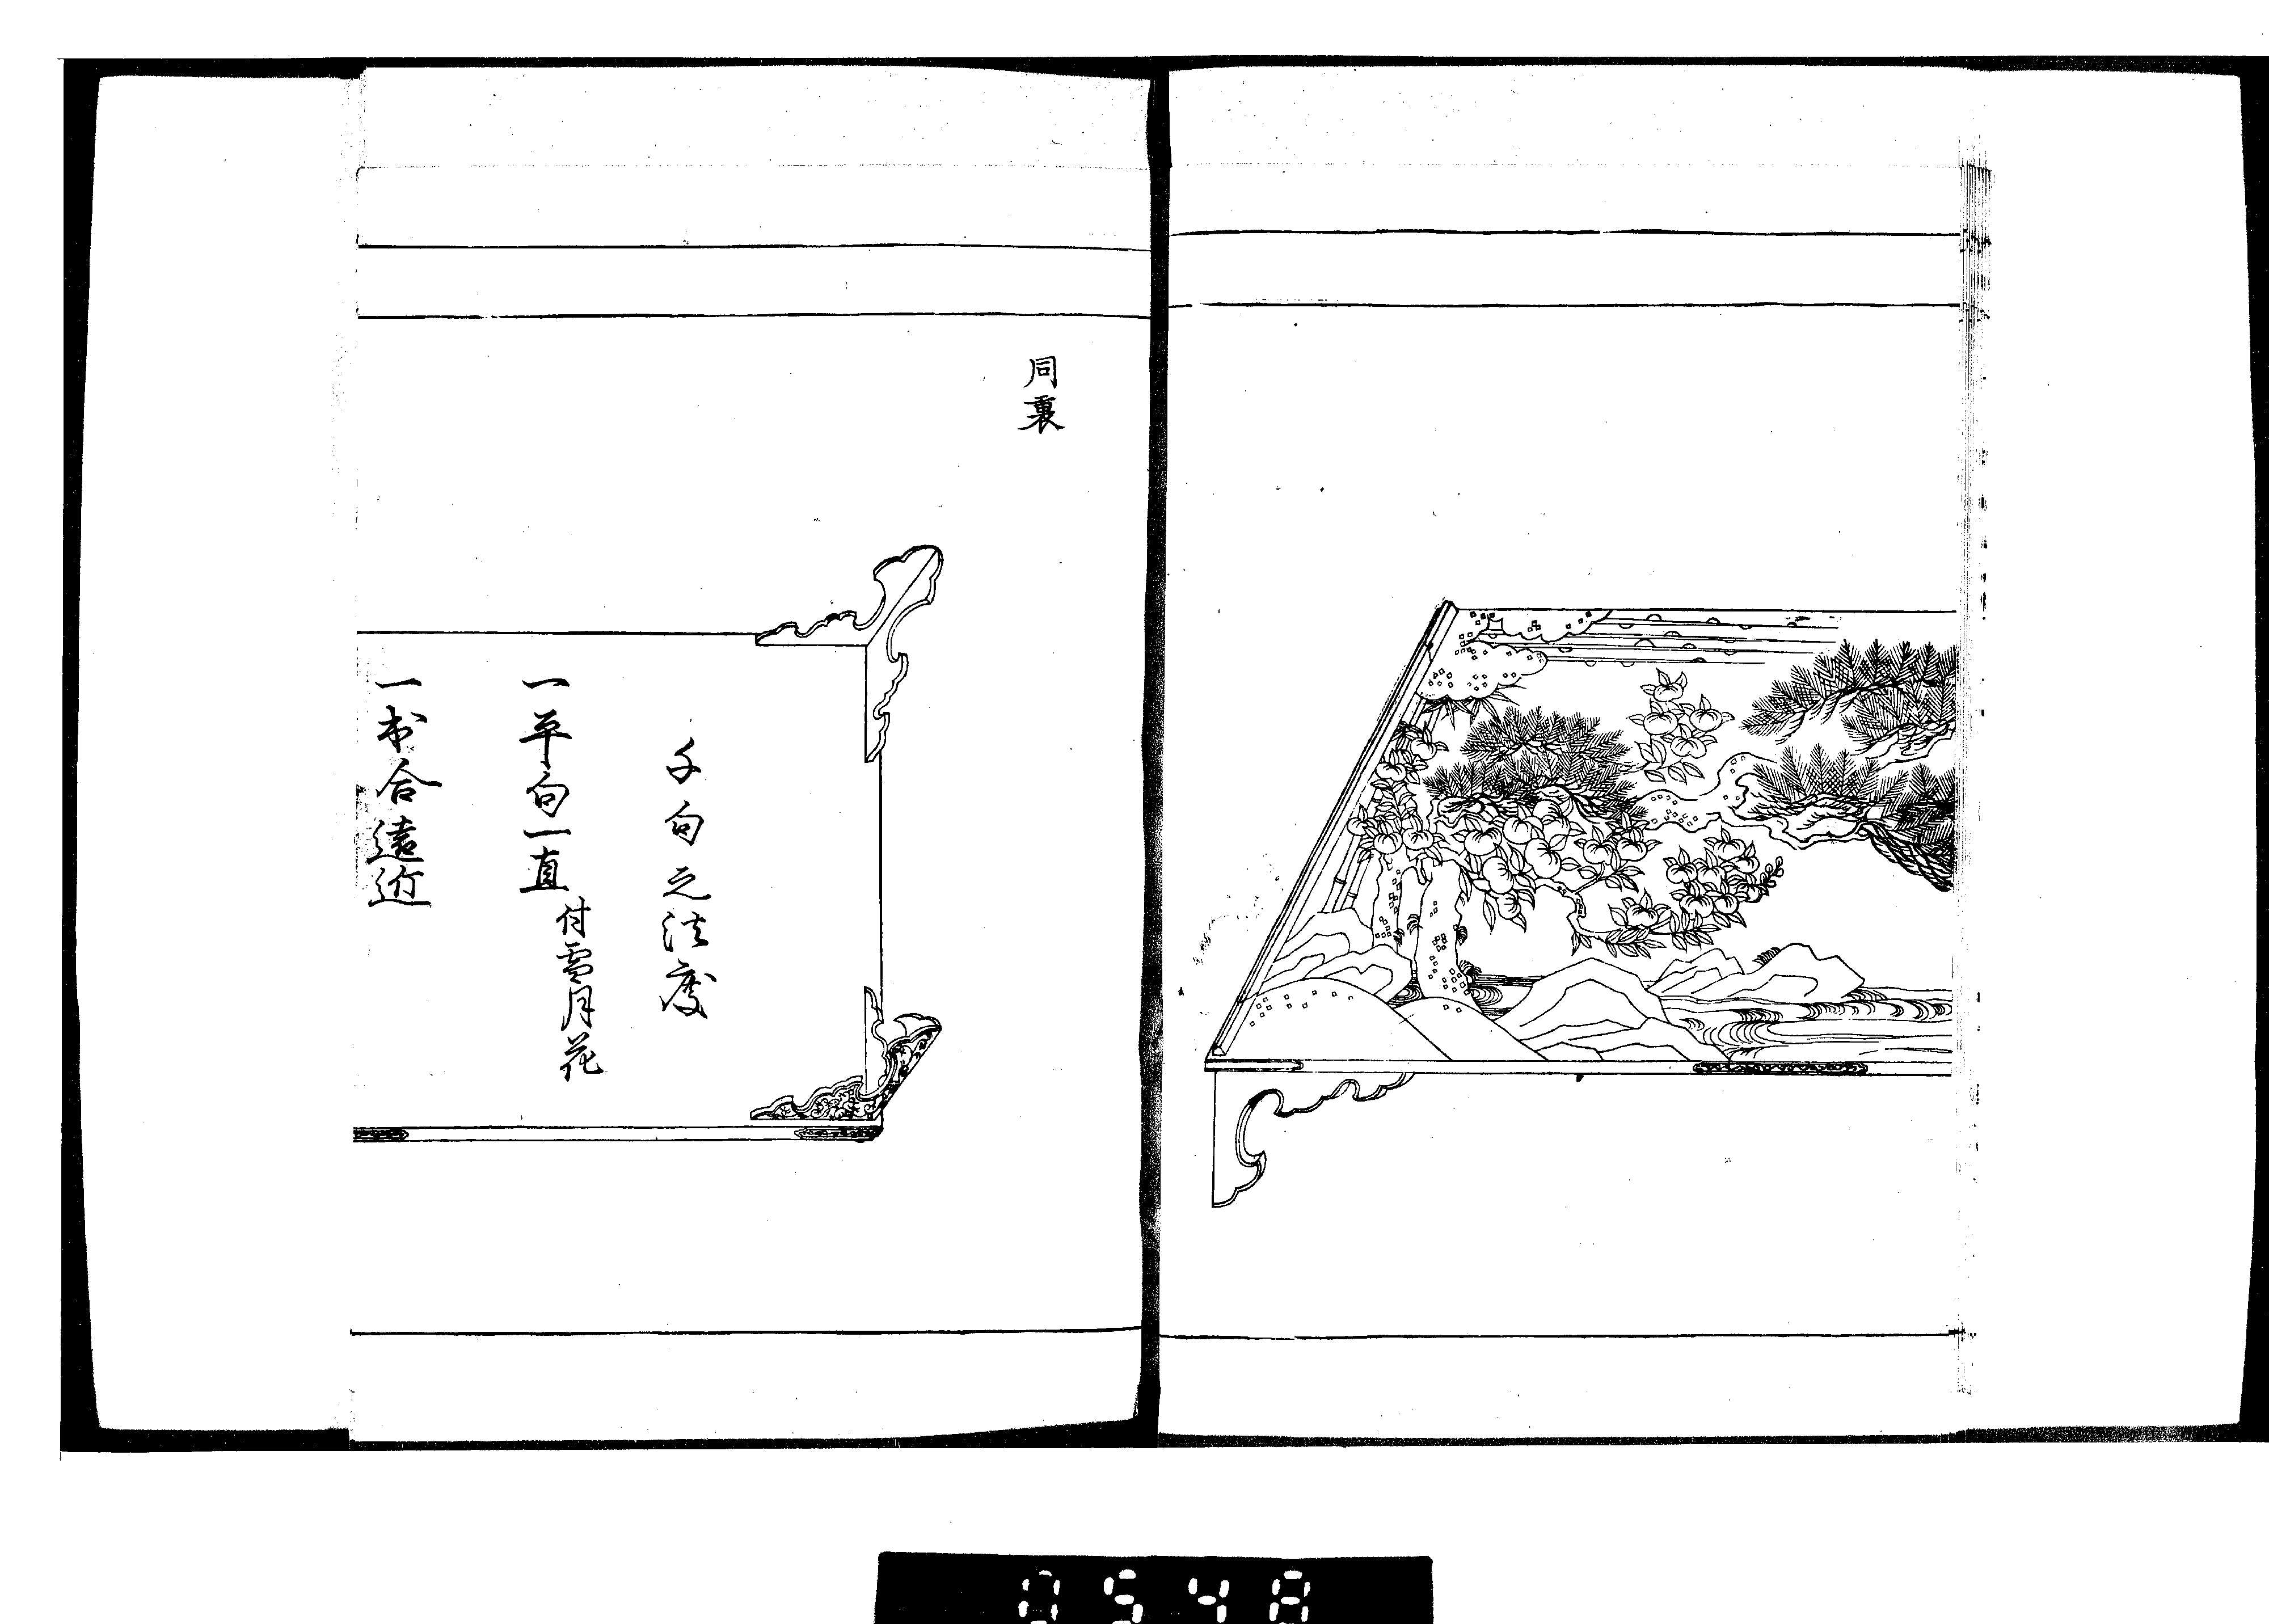 同裏
千句之法度
一平句一直付雪月花
一本合遠近
0548